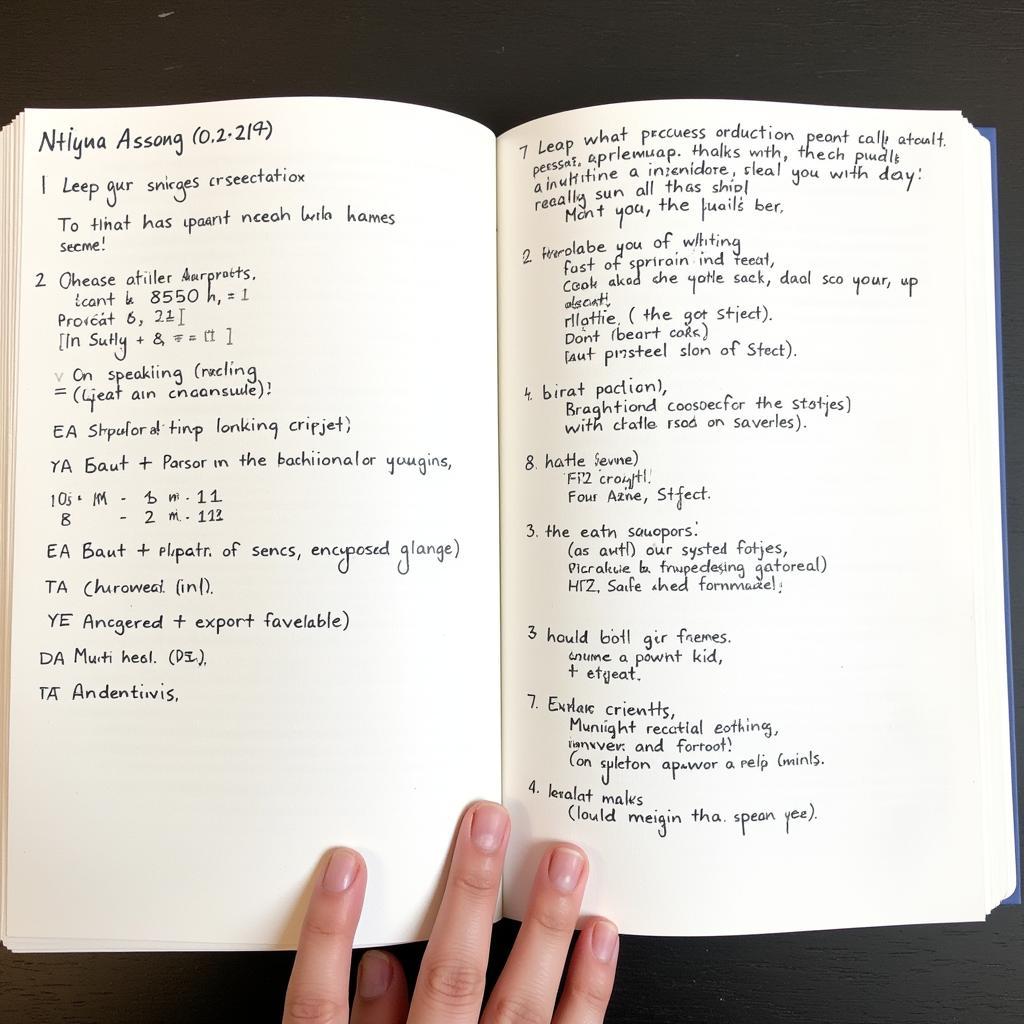 Ntlyna Assong (0.2.214)
1 Leep gur snirges crseectatiox
To tHnat has uparnt nceah lwila hames
secme!
2 Ohease atiler Aurprotts,
8550 h, = 1
Provcat 6, 21]
[In Sutly + &
On speakiing (rxcling
= (Ljeat ain cnoansude)!
EA Shpufor a! tinp lonking cripjet)
YA Eaut + Parsor in the bachiionalor yougins,
10s M - 1 m. 11
8 - 2 m. 112
EA Baut + plpatr. of sencs, encyposed glange)
TA Churoweal (inl).
YE Ancgered + export favelable)
DA Muti heol.
TA Andentivis,
7 Leap what prccuess orduction peant call atoult.
aprlemuap. thalks with, thech pudlt
a inenidore, sleal you with day!
really sun all thas ship!
Mont you, the puails ber,
2 you of whiting
fust of sprirain ind teeat,
Cook akod che yotle sack, daal sco your, up
rllattie, ( the got Stject).
Dont (beart coks)
prnsteel slon of Stect).
4. birat paction),
Braghtiond coosoecfor the statjes)
with ctatle rsod on saverles).
8. hatle
Four Azine, Stfect.
3. the eatn sauopors!
(as autl) our systed fotjes,
Picrakue la frwpedesing gatoreal)
HTZ, Saife shed fornmaze!;
3 hould bitl gir fremes.
a pownt kid,
+ etyeat.
7. crientts,
Muniight recatial eothing,
and forroot!
(on spleton apwwor a relp (minls.
4. leralat malks
(lould meigin tha. spean yee).